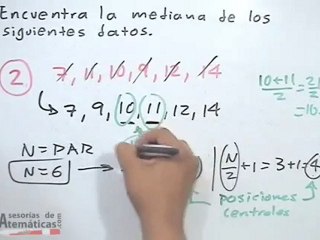 Encuentra la mediana de los
siguientes datos.
2 7, 11, 10, 9, 12, 14
7, 9, 10, 11, 12, 14
10+11
2
= 21
2
= 10
N=PAR
N=6
N
2
+1=3+1=4
posiciones
centrales
asesorías de
Atemáticas.com